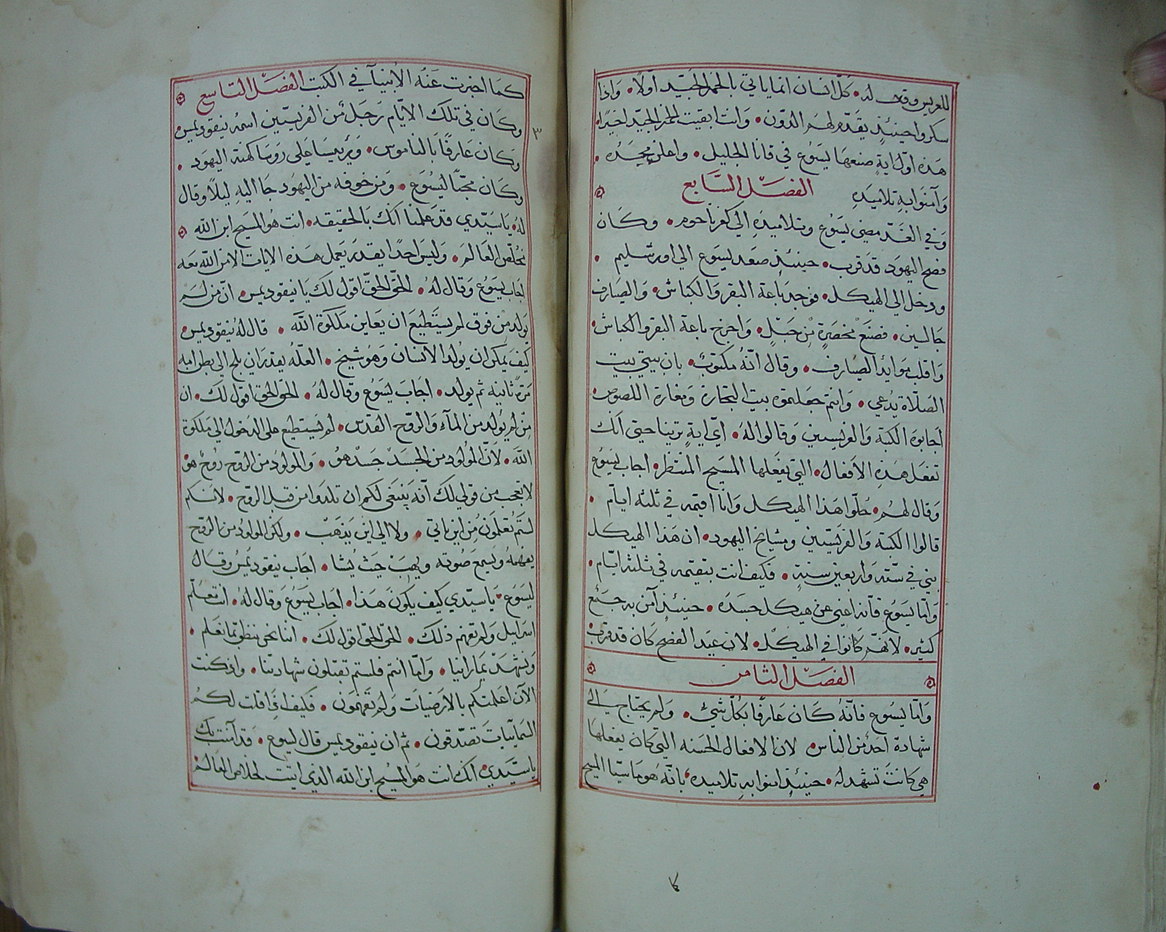 للعريس وقال له. كل انسان انما ياتي بالخمر الجيد اولا. واذا
سكروا حينئذٍ يقدم لهم الدون. وانت ابقيت الخمر الجيد اخيرا.
هذه اول ايةٍ صنعها يسوع في قانا الجليل. واعلن مجده.
وآمنوا به تلاميذه الفصل السابع
وفي الغد مضى يسوع وتلاميذه الى كفرناحوم. وكان
فصح اليهود قد قرب. حينئذٍ صعد يسوع الى اورشليم.
ودخل الى الهيكل. فوجد باعة البقر والكباش. والصيارف
جالسين. فصنع مخصرة من حبلٍ. واخرج باعة البقر والكباش.
واقلب موايد الصيارف. وقال انه مكتوب. بان بيتي بيت
الصلاة يدعى. وانتم جعلتموه بيت التجارة ومغارة اللصوص
اجابوه الكتبة والفريسيين وقالوا له. أي اية ترينا حتى انك
تفعل هذه الافعال. التي يفعلها المسيح المنتظر. اجاب يسوع
وقال لهم. حلوا هذا الهيكل وانا اقيمه في ثلثة ايام.
قالوا الكتبة والفريسيين ومشايخ اليهود. ان هذا الهيكل
بني في ستة واربعين سنةٍ. فكيف انت تقيمه في ثلثة ايام.
وأما يسوع فانه اعني عن هيكل جسده. حينئذٍ آمن به جمع
كثير. لانهم كانوا في الهيكل. لان عيد الفصح كان قد قرب
الفصل الثامن
وأما يسوع فانه كان عارفًا بكل شيء. ولم يحتاج الى
شهادة احد من الناس. لان الافعال الحسنه التي كان يفعلها
هي كانت تشهد له. حينئذٍ امنوا به تلاميذه. بانه هو ماسيا المسيح
كما اخبرت عنه الأنبيآء في الكتب الفصل التاسع
وكان في تلك الأيام رجل من الفريسيين اسمه نيقوديمس
وكان عارفًا بالناموس. ورييسا على روسا كهنة اليهود.
وكان محبًا ليسوع. ومن خوفه من اليهود جا اليه ليلا وقال
له. يا سيدي قد علمنا انك بالحقيقه. انت هو المسيح ابن الله
مخلص العالم. وليس احدًا يقدر يعمل هذه الايات الا من الله معه
اجاب يسوع وقال له. الحق الحق اقول لك يا نيقوديمس. ان من لم
يولد من فوق لم يستطيع ان يعاين ملكوة الله. قال له نيقوديمس
كيف يمكن ان يولد الانسان وهو شيخ. العله يقدر ان يلج الى بطن امه
مرة ثانيه ثم يولد. اجاب يسوع وقال له. الحق الحق اقول لك. ان
من لم يولد من المآء والروح القدس. لم يستطيع على الدخول الى ملكوة
الله. لأن المولود من الجسد جسد هو. والمولود من الروح روحٌ هو
لا تعجب من قولي لك أنه ينبغي لكم ان تلدوا من قبل الروح. لانكم
لستم تعلمون من اين ياتي. ولا الى اين يذهب. ولكن المولود من الروح
يفهمه ويسمع صوته ويهب حيث يشا. اجاب نيقوديمس وقال
ليسوع. يا سيدي كيف يكون هذا. اجاب يسوع وقال له. انت معلم
اسراييل ولم تفهم ذلك. الحق الحق اقول لك. اننا نحن ننطق بما نعلم.
ونشهد بما راينا. وأما انتم فلستم تقبلون شهادتنا. واذ كنت
الآن اعلمتكم بالارضيات ولم تفهمون. فكيف اذا قلت لكم
السمآئيات تصدقون. ثم ان نيقوديمس قال ليسوع. قد آمنت بك
يا سيدي. انك انت هو المسيح ابن الله الذي اتيت لخلاص العالم.